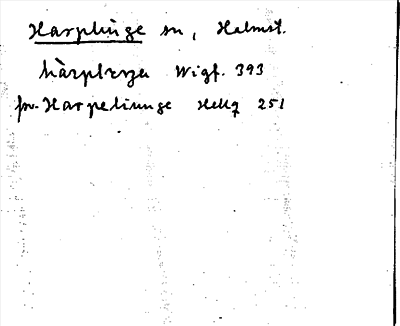 Harplinge sn, Halmst.
hàrplɩŋa Wigf. 393
fsv. Harpeliunge Hellq 251